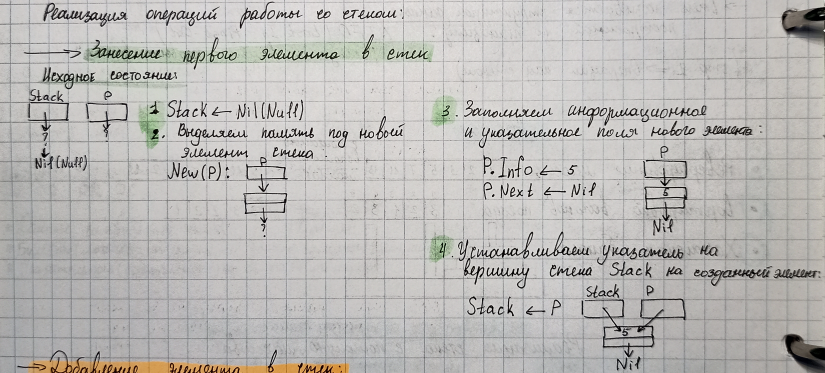 Реализация операций работы со стеком:
→ Занесение первого элемента в стек
Исходное состояние:
Stack P
? ?
Nil (Null)
1. Stack ← Nil (Null)
2. Выделяем память под новый
элемент стека.
New(P): P
?
3. Заполняем информационное
и указательное поля нового элемента:
P
P.Info ← 5
5
P.Next ← Nil
Nil
4. Устанавливаем указатель на
вершину стека Stack на созданный элемент:
Stack P
Stack ← P
5
Nil
→ Добавление элемента в стек: